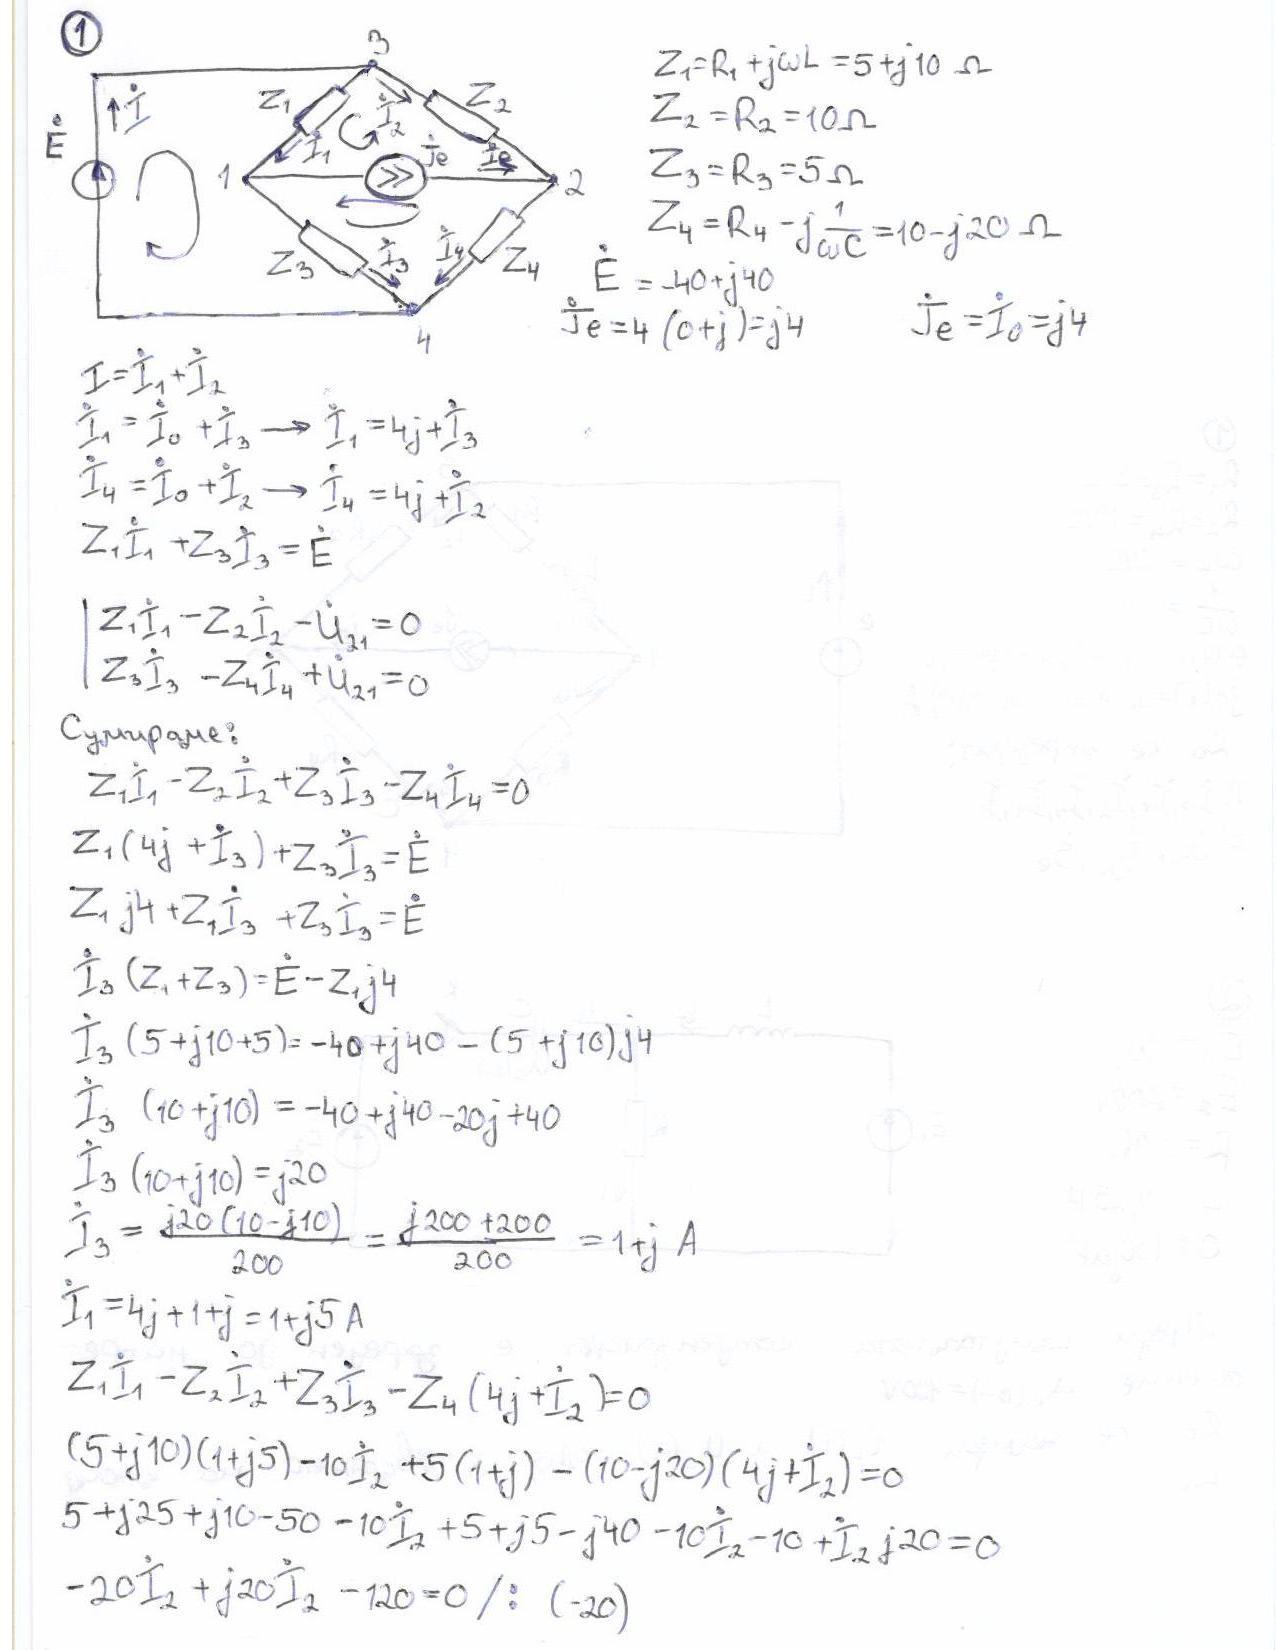 1
3
Z₁ İ₂ Z₂
İ
Ė
İ₁ J̇e İe
1 2
Z₃ İ₃ İ₄ Z₄
4
Z₁=R₁+jωL=5+j10 Ω
Z₂=R₂=10Ω
Z₃=R₃=5Ω
Z₄=R₄-j1/ωC=10-j20 Ω
Ė=-40+j40
J̇e=4(0+j)=j4 J̇e=İ₀=j4
I=İ₁+İ₂
İ₁=İ₀+İ₃→İ₁=4j+İ₃
İ₄=İ₀+İ₂→İ₄=4j+İ₂
Z₁İ₁+Z₃İ₃=Ė
Z₁İ₁-Z₂İ₂-U̇₂₁=0
Z₃İ₃-Z₄İ₄+U̇₂₁=0
Сумираме:
Z₁İ₁-Z₂İ₂+Z₃İ₃-Z₄İ₄=0
Z₁(4j+İ₃)+Z₃İ₃=Ė
Z₁j4+Z₁İ₃+Z₃İ₃=Ė
İ₃(Z₁+Z₃)=Ė-Z₁j4
İ₃(5+j10+5)=-40+j40-(5+j10)j4
İ₃(10+j10)=-40+j40-20j+40
İ₃(10+j10)=j20
İ₃=j20(10-j10)/200=j200+200/200=1+j A
İ₁=4j+1+j=1+j5 A
Z₁İ₁-Z₂İ₂+Z₃İ₃-Z₄(4j+İ₂)=0
(5+j10)(1+j5)-10İ₂+5(1+j)-(10-j20)(4j+İ₂)=0
5+j25+j10-50-10İ₂+5+j5-j40-10İ₂-10+İ₂j20=0
-20İ₂+j20İ₂-120=0/:(-20)